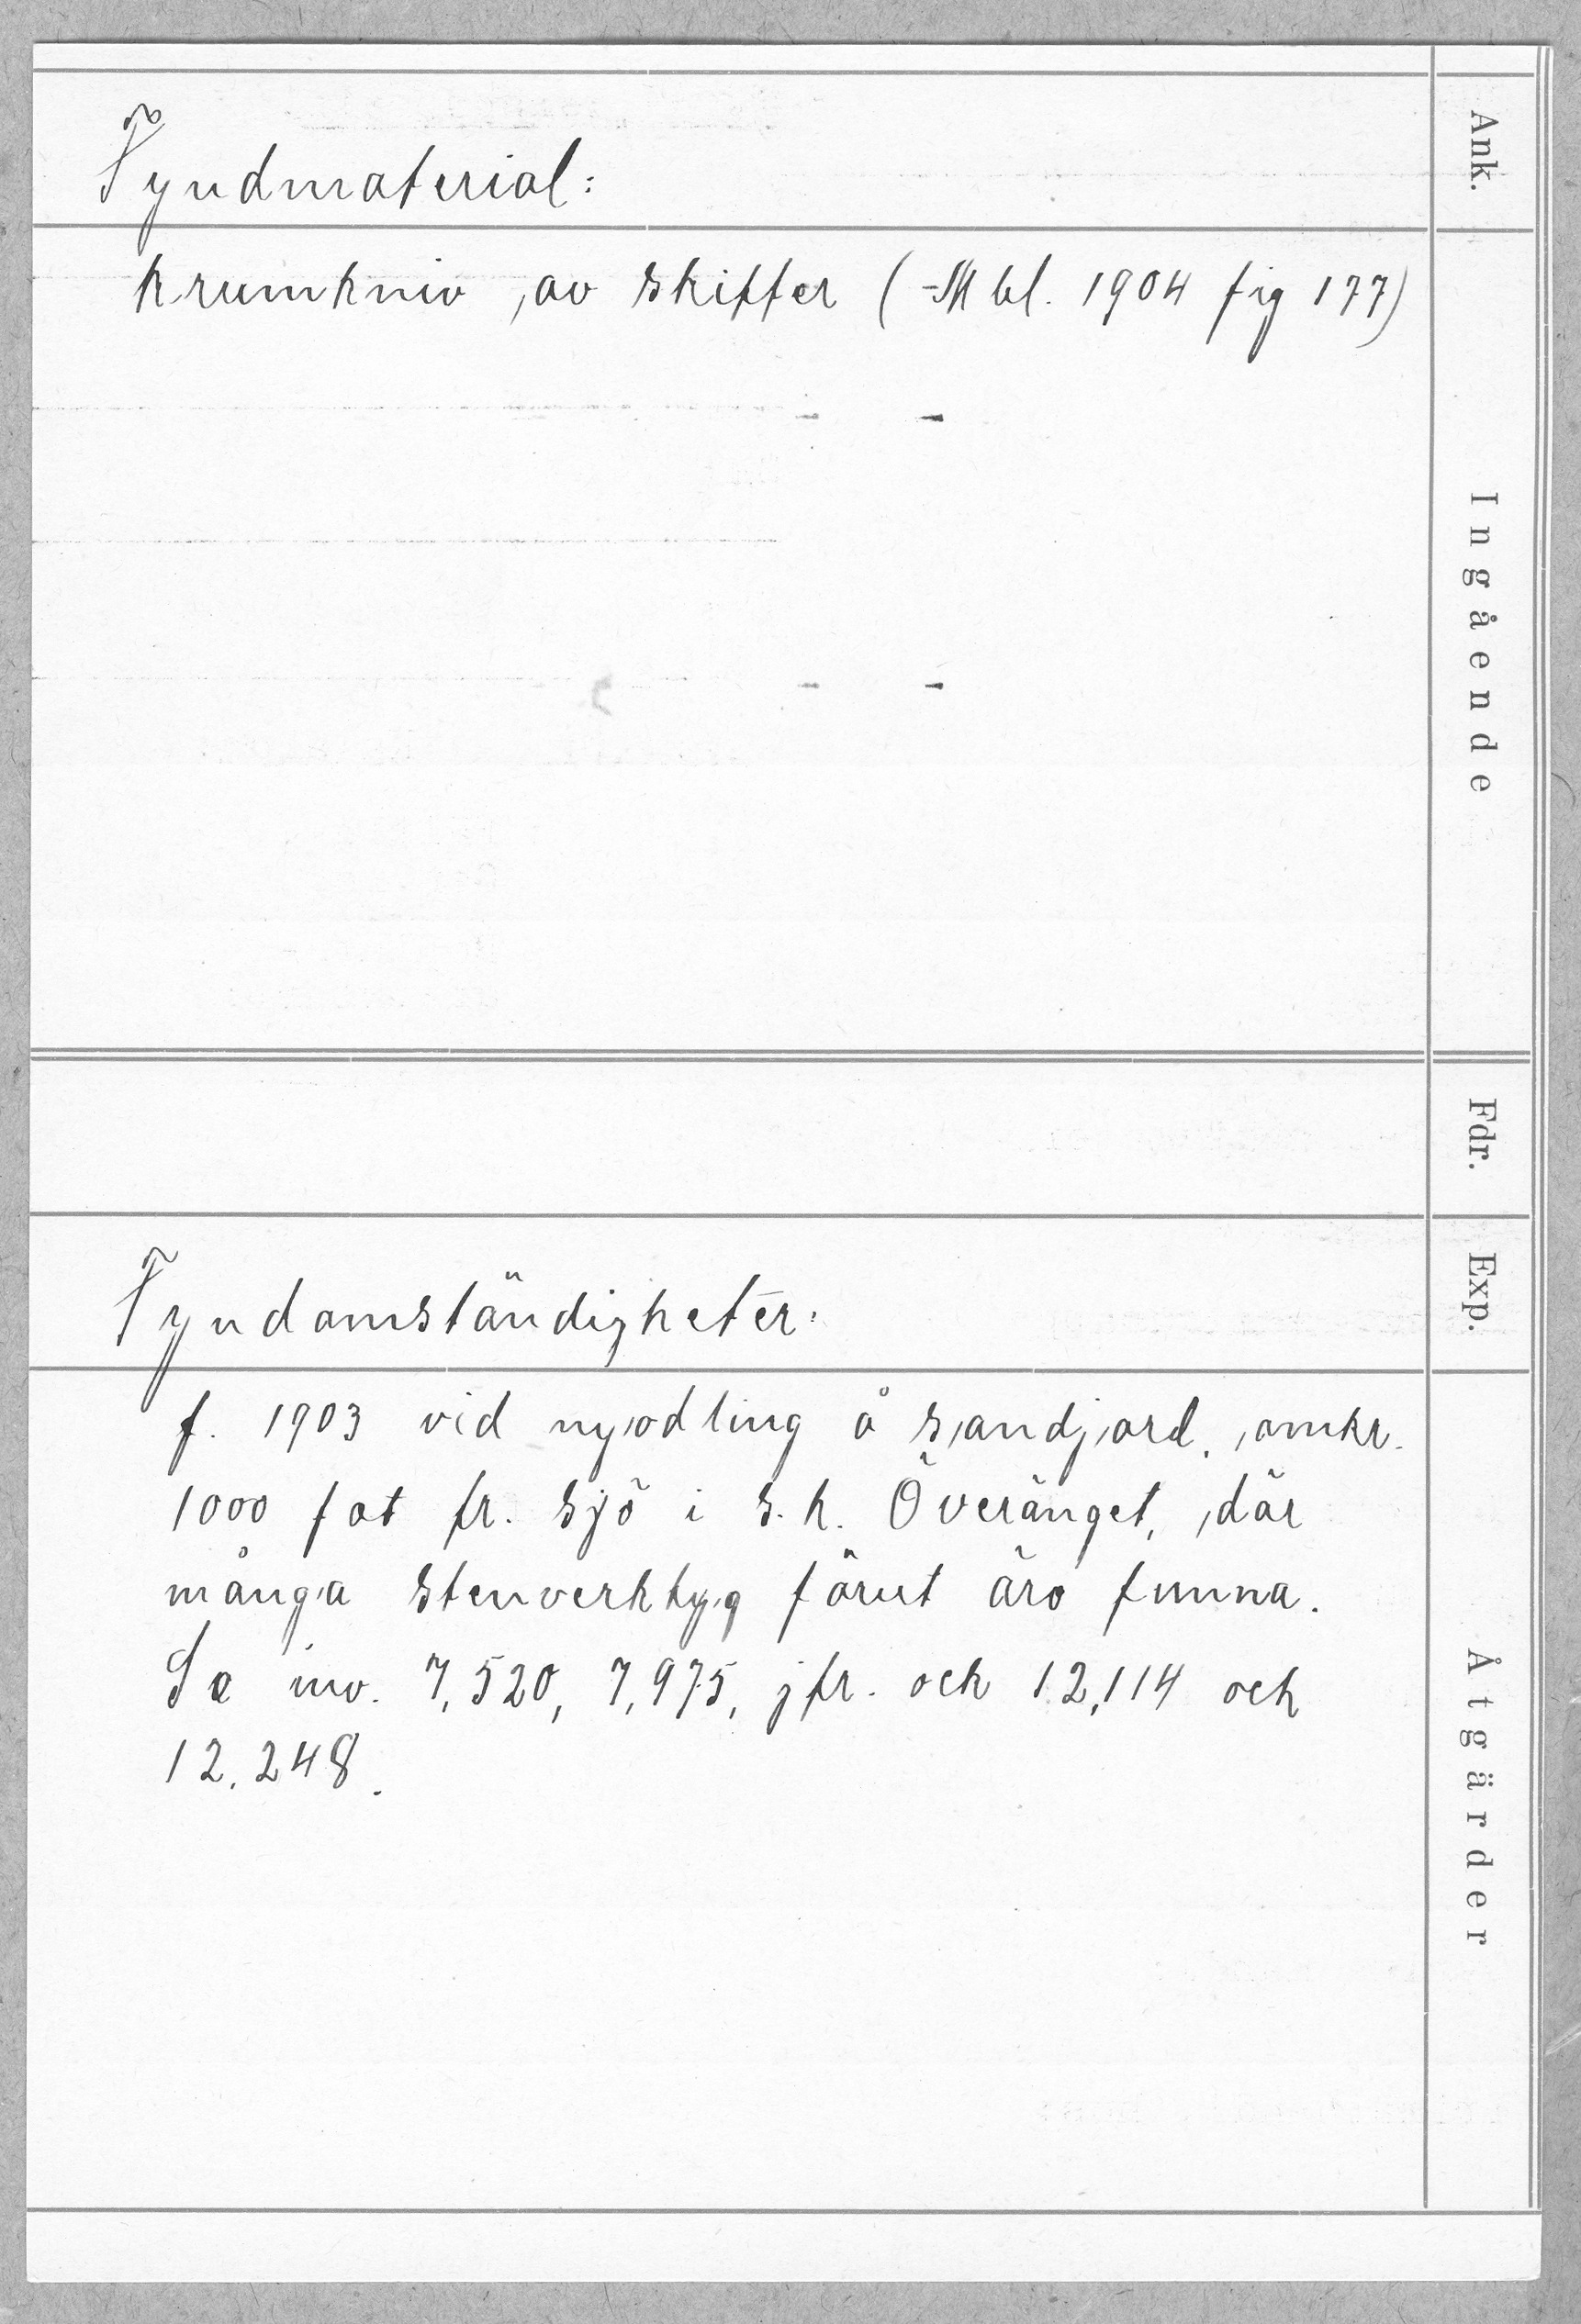 Fyndmaterial:
krumkniv av skiffer (=Mbl. 1904 fig 177)
Fyndomständigheter:
f. 1903 vid nyodling å sandjord, omkr.
1000 fot fr. sjö i s.k. Överänget, där
många stenverktyg förut äro funna.
Se inv. 7,520, 7,975, jfr. och 12,114 och
12,248.
Ank.
Ingående
Fdr.
Exp.
Åtgärder